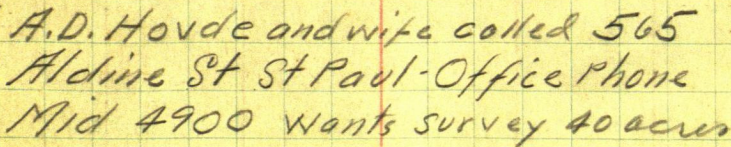 A.D. Hovde and wife called 565
Aldine St St Paul - Office Phone
Mid 4900 Wants survey 40 acres